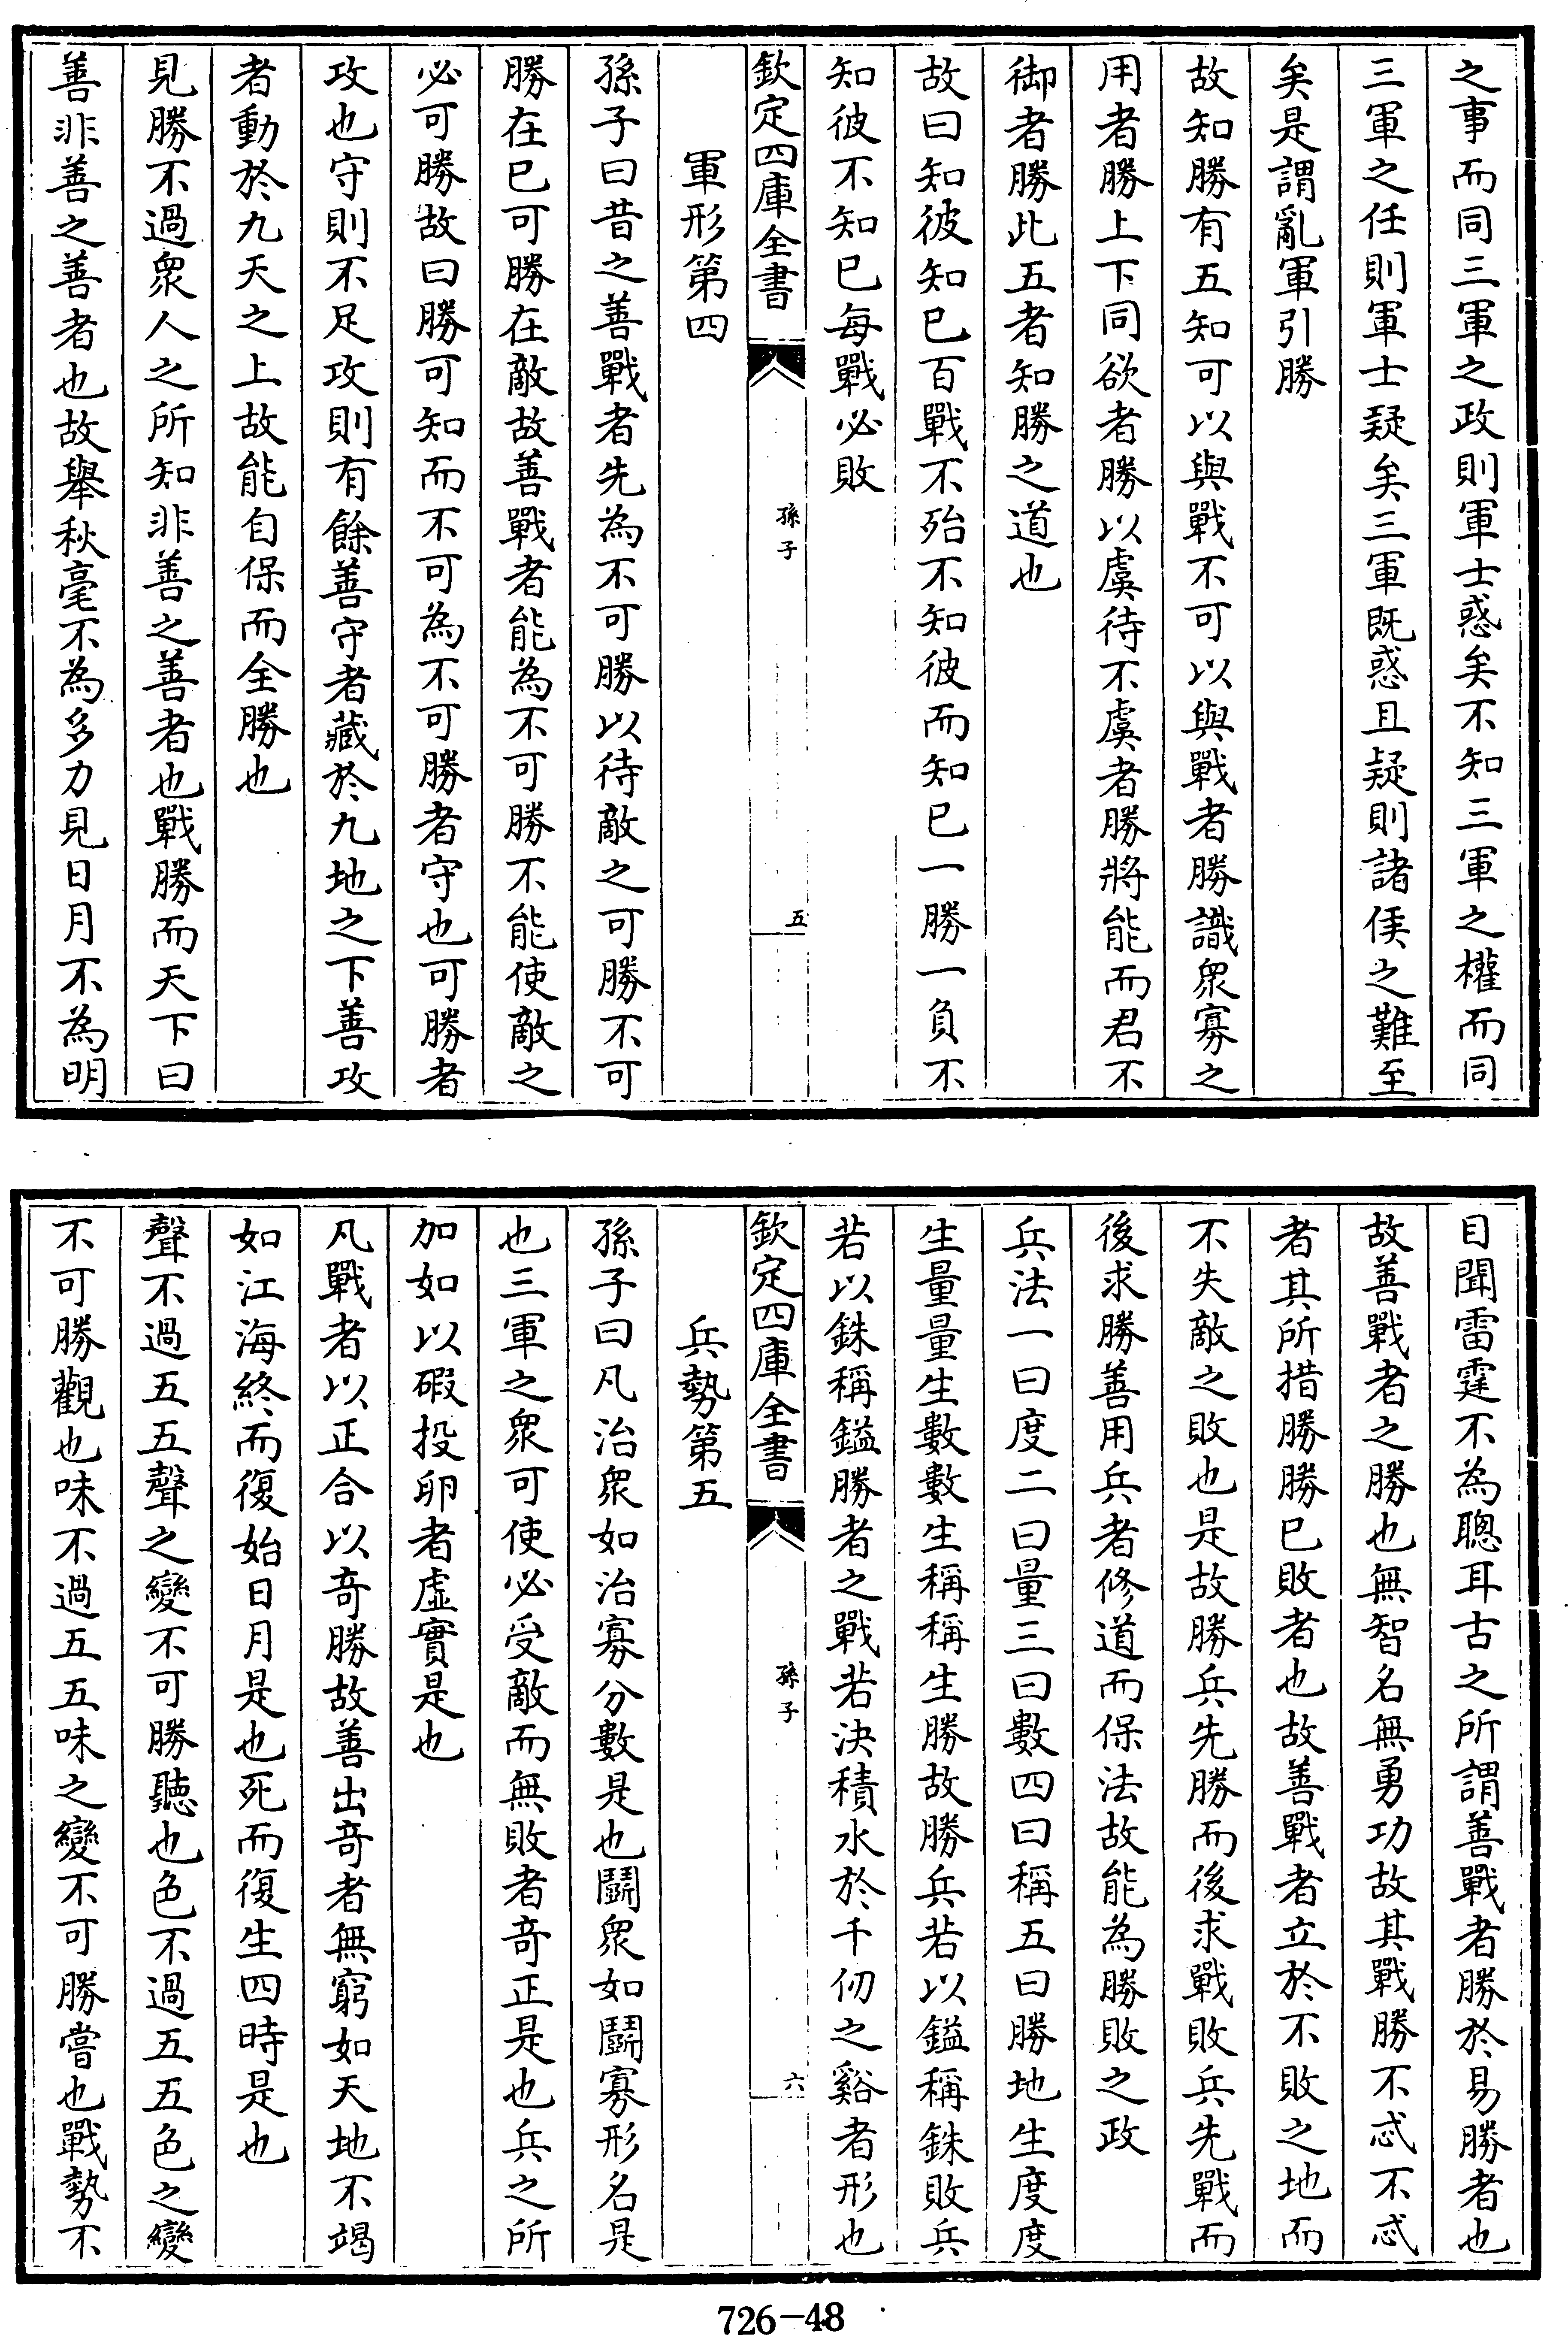 之事而同三軍之政則軍士惑矣不知三軍之權而同
三軍之任則軍士疑矣三軍既惑且疑則諸侯之難至
矣是謂亂軍引勝
故知勝有五知可以與戰不可以與戰者勝識衆寡之
用者勝上下同欲者勝以虞待不虞者勝將能而君不
御者勝此五者知勝之道也
故曰知彼知已百戰不殆不知彼而知已一勝一負不
知彼不知已每戰必敗
欽定四庫全書
孫子
五
軍形第四
孫子曰昔之善戰者先為不可勝以待敵之可勝不可
勝在已可勝在敵故善戰者能為不可勝不能使敵之
必可勝故曰勝可知而不可為不可勝者守也可勝者
攻也守則不足攻則有餘善守者藏於九地之下善攻
者動於九天之上故能自保而全勝也
見勝不過衆人之所知非善之善者也戰勝而天下曰
善非善之善者也故舉秋毫不為多力見日月不為明
目聞雷霆不為聰耳古之所謂善戰者勝於易勝者也
故善戰者之勝也無智名無勇功故其戰勝不忒不忒
者其所措勝勝已敗者也故善戰者立於不敗之地而
不失敵之敗也是故勝兵先勝而後求戰敗兵先戰而
後求勝善用兵者修道而保法故能為勝敗之政
兵法一曰度二曰量三曰數四曰稱五曰勝地生度度
生量量生數數生稱稱生勝故勝兵若以鎰稱銖敗兵
若以銖稱鎰勝者之戰若決積水於千仞之谿者形也
欽定四庫全書
孫子
六
兵勢第五
孫子曰凡治衆如治寡分數是也鬭衆如鬭寡形名是
也三軍之衆可使必受敵而無敗者竒正是也兵之所
加如以碬投卵者虛實是也
凡戰者以正合以竒勝故善出竒者無窮如天地不竭
如江海終而復始日月是也死而復生四時是也
聲不過五五聲之變不可勝聽也色不過五五色之變
不可勝觀也味不過五五味之變不可勝嘗也戰勢不
726-48